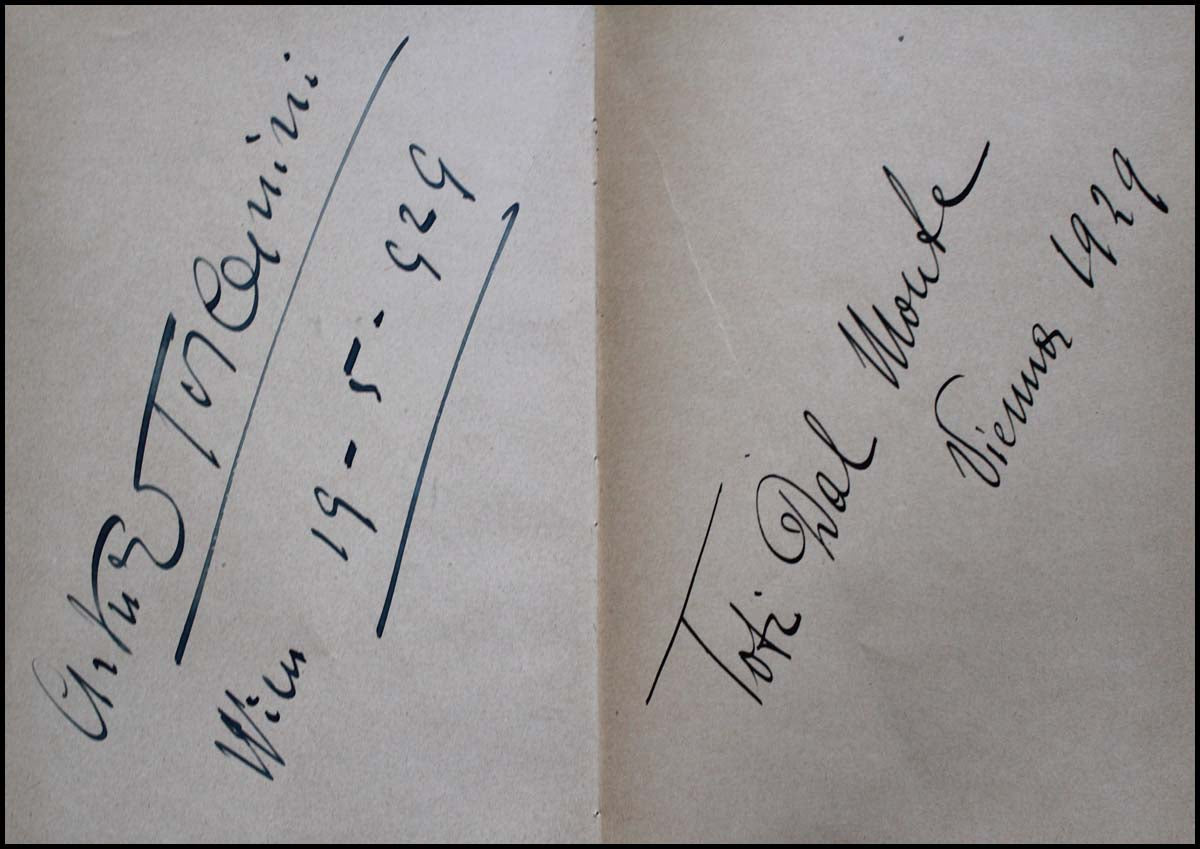 Arturo Toscanini
Wien 19-5-929
Toti Dal Monte
Vienna 1929